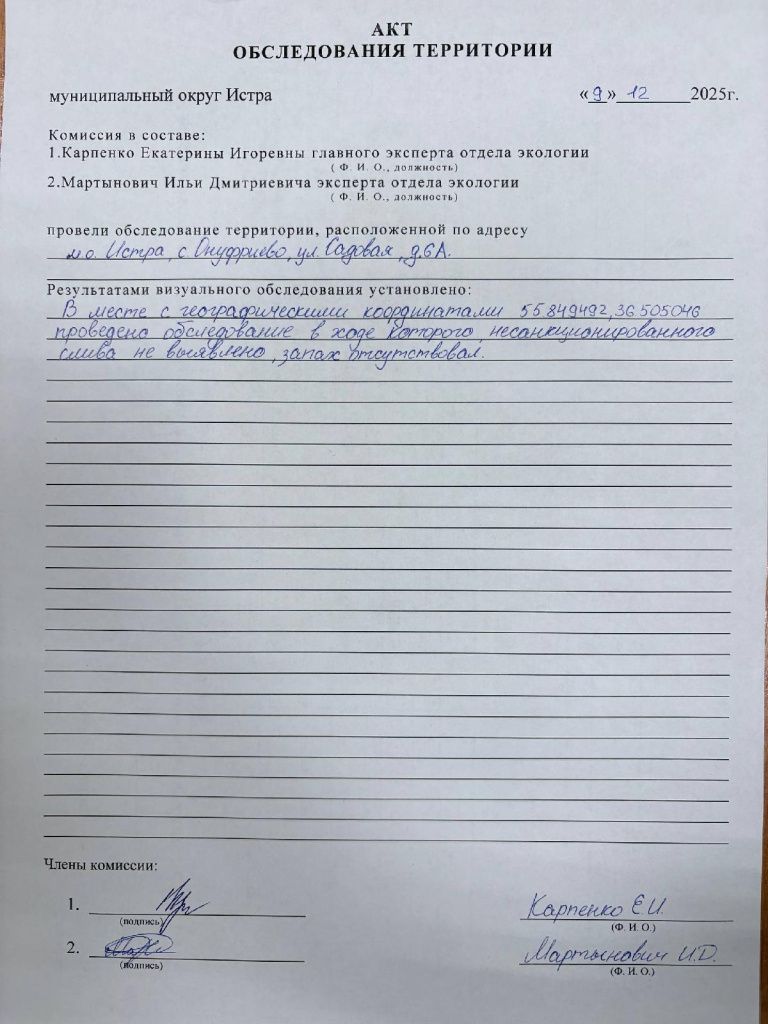 АКТ
ОБСЛЕДОВАНИЯ ТЕРРИТОРИИ
муниципальный округ Истра «9» 12 2025г.
Комиссия в составе:
1.Карпенко Екатерины Игоревны главного эксперта отдела экологии
( Ф. И. О., должность)
2.Мартынович Ильи Дмитриевича эксперта отдела экологии
( Ф. И. О., должность)
провели обследование территории, расположенной по адресу
м.о. Истра, с. Онуфриево, ул. Садовая, д.6А.
Результатами визуального обследования установлено:
В месте с географическими координатами 55.849492, 36.505046
проведено обследование в ходе которого, несанкционированного
слива не выявлено, запах отсутствовал.
Члены комиссии:
1. Карпенко Е.И.
(подпись) (Ф. И. О.)
2. Мартынович И.Д.
(подпись) (Ф. И. О.)